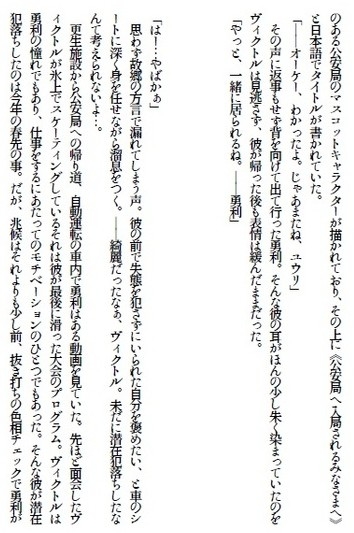 のある公安局のマスコットキャラクターが描かれており、その上に《公安局へ入局されるみなさまへ》
と日本語でタイトルが書かれていた。
「――オーケー、わかったよ。じゃあまたね、ユウリ」
その声に返事もせず背を向けて出て行った勇利。そんな彼の耳がほんの少し朱く染まっていたのを
ヴィクトルは見逃さず、彼が帰った後も表情は緩んだままだった。
「やっと、一緒に居られるね。――勇利」
「は！…やばかぁ」
思わず故郷の方言で漏れてしまう声。彼の前で失態を犯さずにいられた自分を褒めたい、と車のシ
ートに深く身を任せながら溜息をつく。――綺麗だったなぁ、ヴィクトル。未だに潜在犯落ちしたな
んて考えられないよ…。
更生施設から公安局への帰り道、自動運転の車内で勇利はある動画を見ていた。先ほど面会したヴ
ィクトルが氷上でスケーティングしているそれは彼が最後に滑った大会のプログラム。ヴィクトルは
勇利の憧れでもあり、仕事をするにあたってのモチベーションのひとつでもあった。そんな彼が潜在
犯落ちしたのは今年の春先の事。だが、兆候はそれよりも少し前、抜き打ちの色相チェックで勇利が